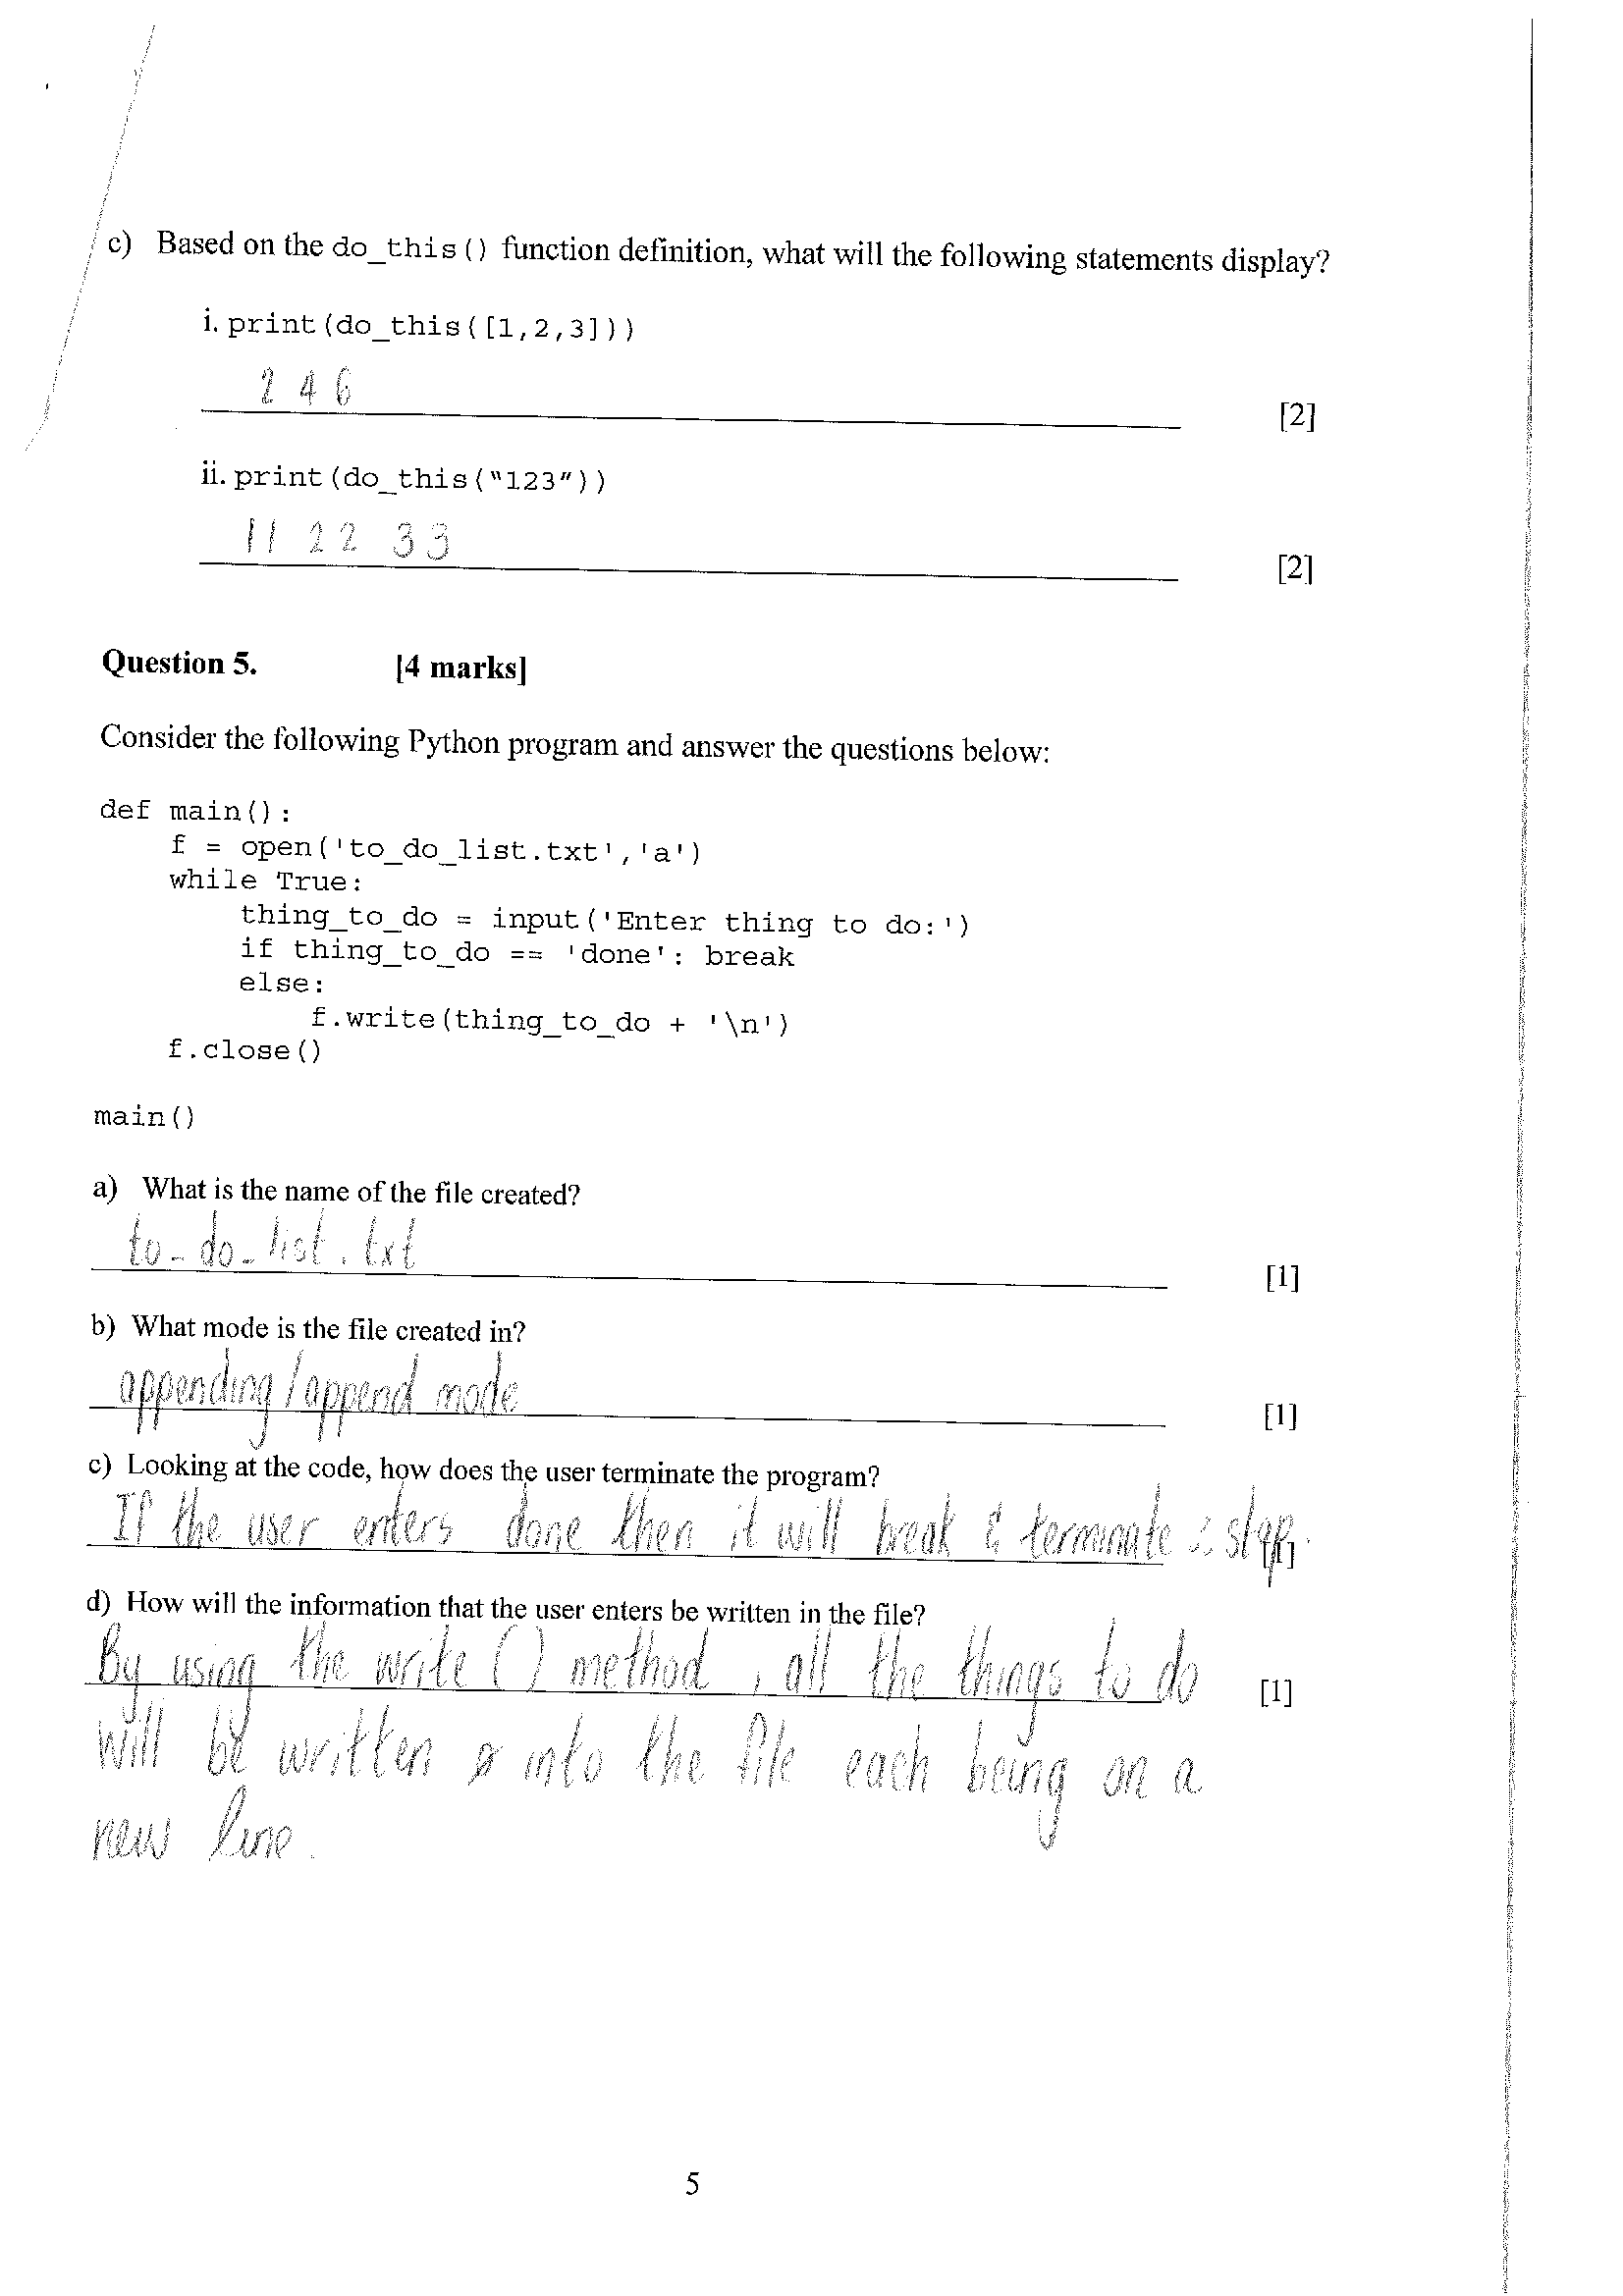 c) Based on the do_this() function definition, what will the following statements display?
i. print(do_this([1,2,3]))
2 4 6
[2]
ii. print(do_this(“123”))
11 22 33
[2]
Question 5. [4 marks]
Consider the following Python program and answer the questions below:
def main():
    f = open('to_do_list.txt','a')
    while True:
        thing_to_do = input('Enter thing to do:')
        if thing_to_do == 'done': break
        else:
            f.write(thing_to_do + '\n')
    f.close()
main()
a) What is the name of the file created?
to_do_list.txt
[1]
b) What mode is the file created in?
appending/append mode
[1]
c) Looking at the code, how does the user terminate the program?
If the user enters done then it will break & terminate
d) How will the information that the user enters be written in the file?
By using the write() method, all the things to do [1]
will be written into the file each being on a
new line.
5